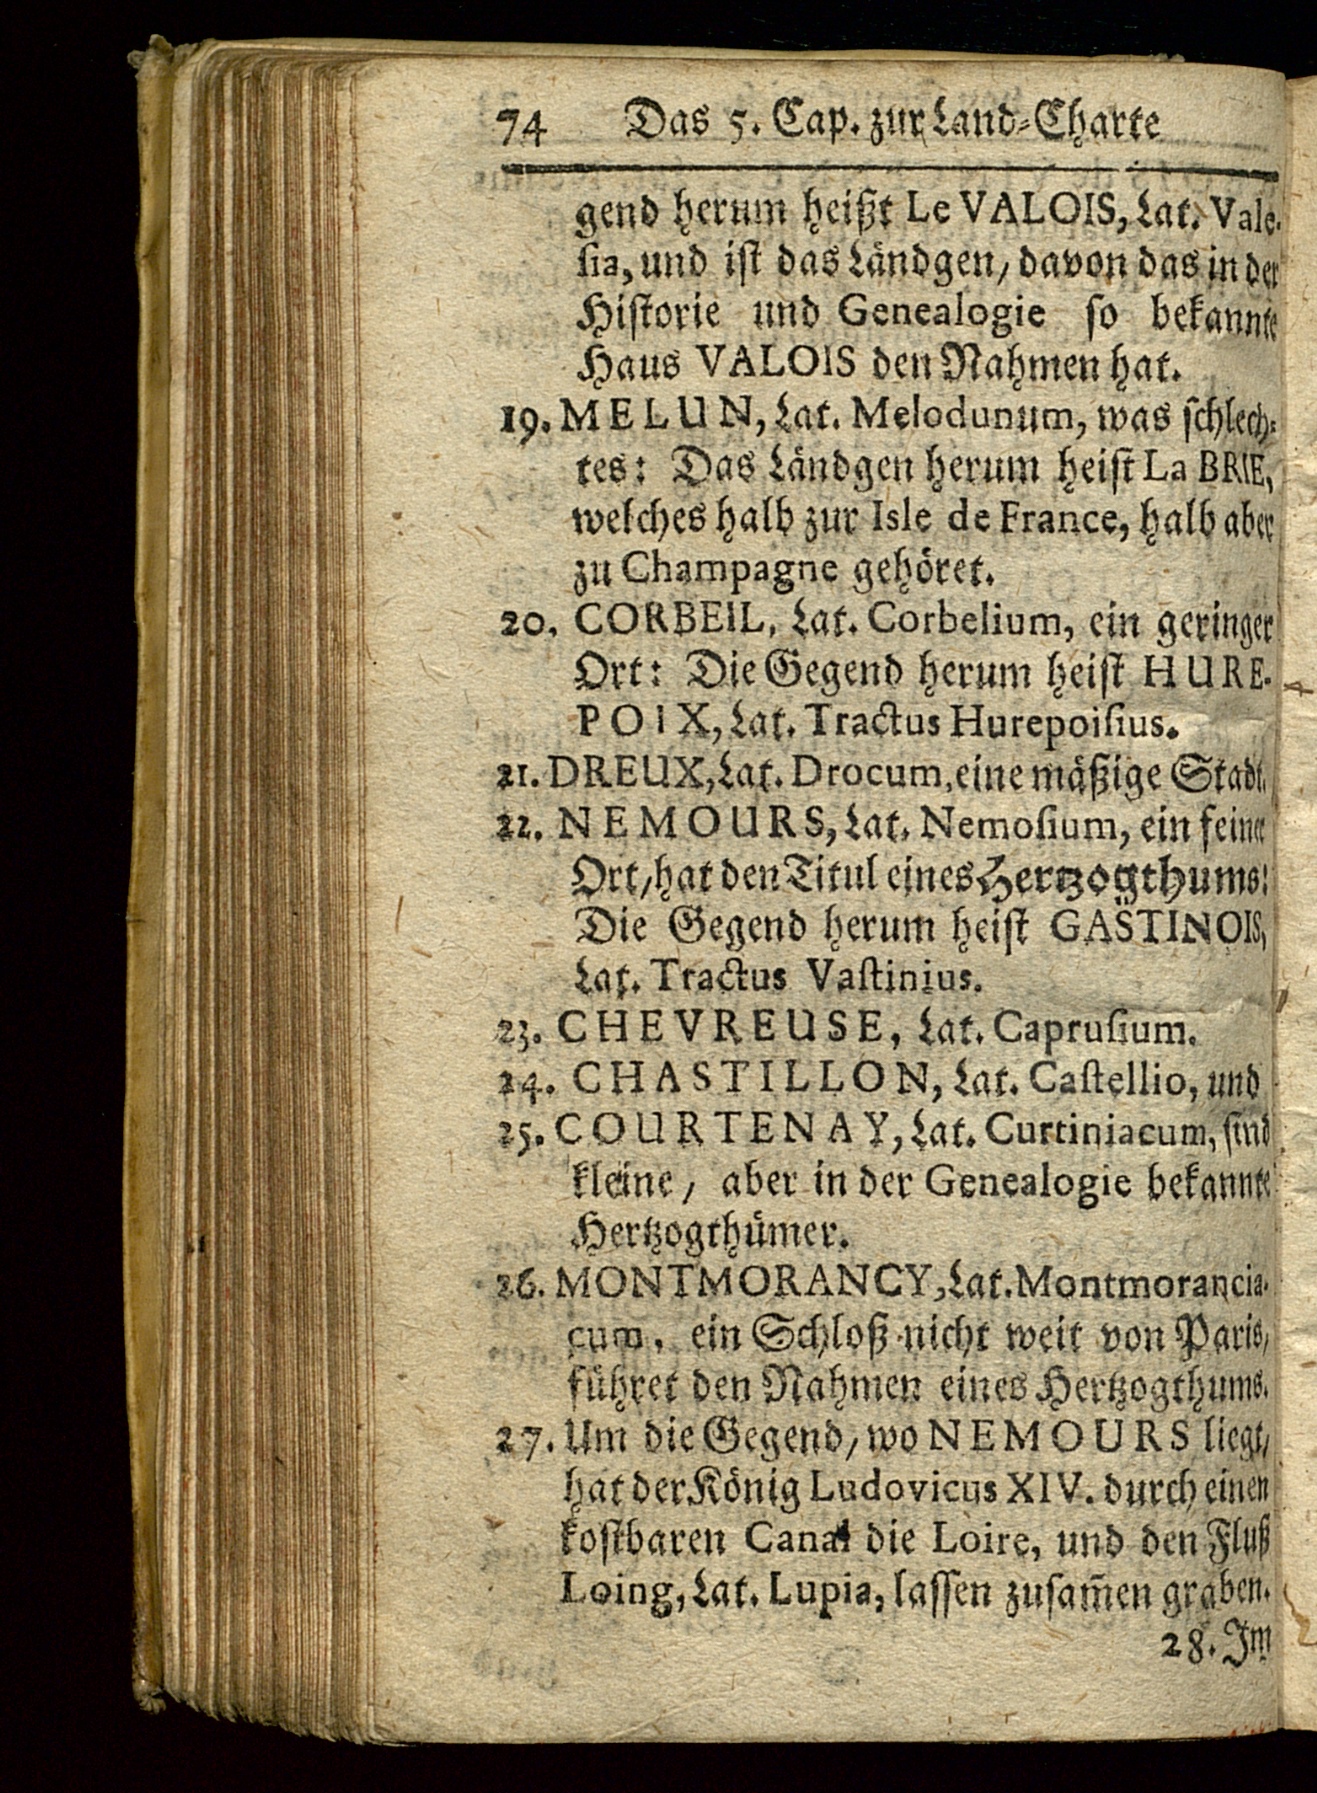 74 Das 5. Cap. zur Land-Charte
gend herum heißt Le VALOIS, Lat. Vale-
sia, und ist das Ländgen, davon das in der
Historie und Genealogie so bekannte
Haus VALOIS den Nahmen hat.
19. MELUN, Lat. Melodunum, was schlech-
tes: Das Ländgen herum heist La BRIE,
welches halb zur Isle de France, halb aber
zu Champagne gehöret.
20. CORBEIL, Lat. Corbelium, ein geringer
Ort: Die Gegend herum heist HURE-
POIX, Lat. Tractus Hurepoisius.
21. DREUX, Lat. Drocum, eine mäßige Stadt.
22. NEMOURS, Lat. Nemosium, ein feiner
Ort, hat den Titul eines Hertzogthums:
Die Gegend herum heist GASTINOIS,
Lat. Tractus Vastinius.
23. CHEVREUSE, Lat. Caprusium.
24. CHASTILLON, Lat. Castellio, und
25. COURTENAY, Lat. Curtiniacum, sind
kleine, aber in der Genealogie bekannte
Hertzogthümer.
26. MONTMORANCY, Lat. Montmorancia-
cum, ein Schloß nicht weit von Paris,
führet den Nahmen eines Hertzogthums.
27. Um die Gegend, wo NEMOURS liegt,
hat der König Ludovicus XIV. durch einen
kostbaren Canal die Loire, und den Fluß
Loing, Lat. Lupia, lassen zusam̃en graben.
28. Im